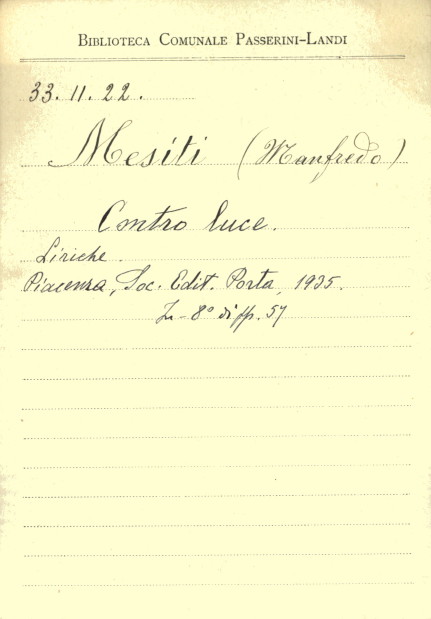 BIBLIOTECA COMUNALE PASSERINI-LANDI
33. 11. 22.
Mesiti (Manfredo)
Contro luce.
Liriche.
Piacenza, Soc. Edit. Porta, 1935.
In-8° di pp. 57